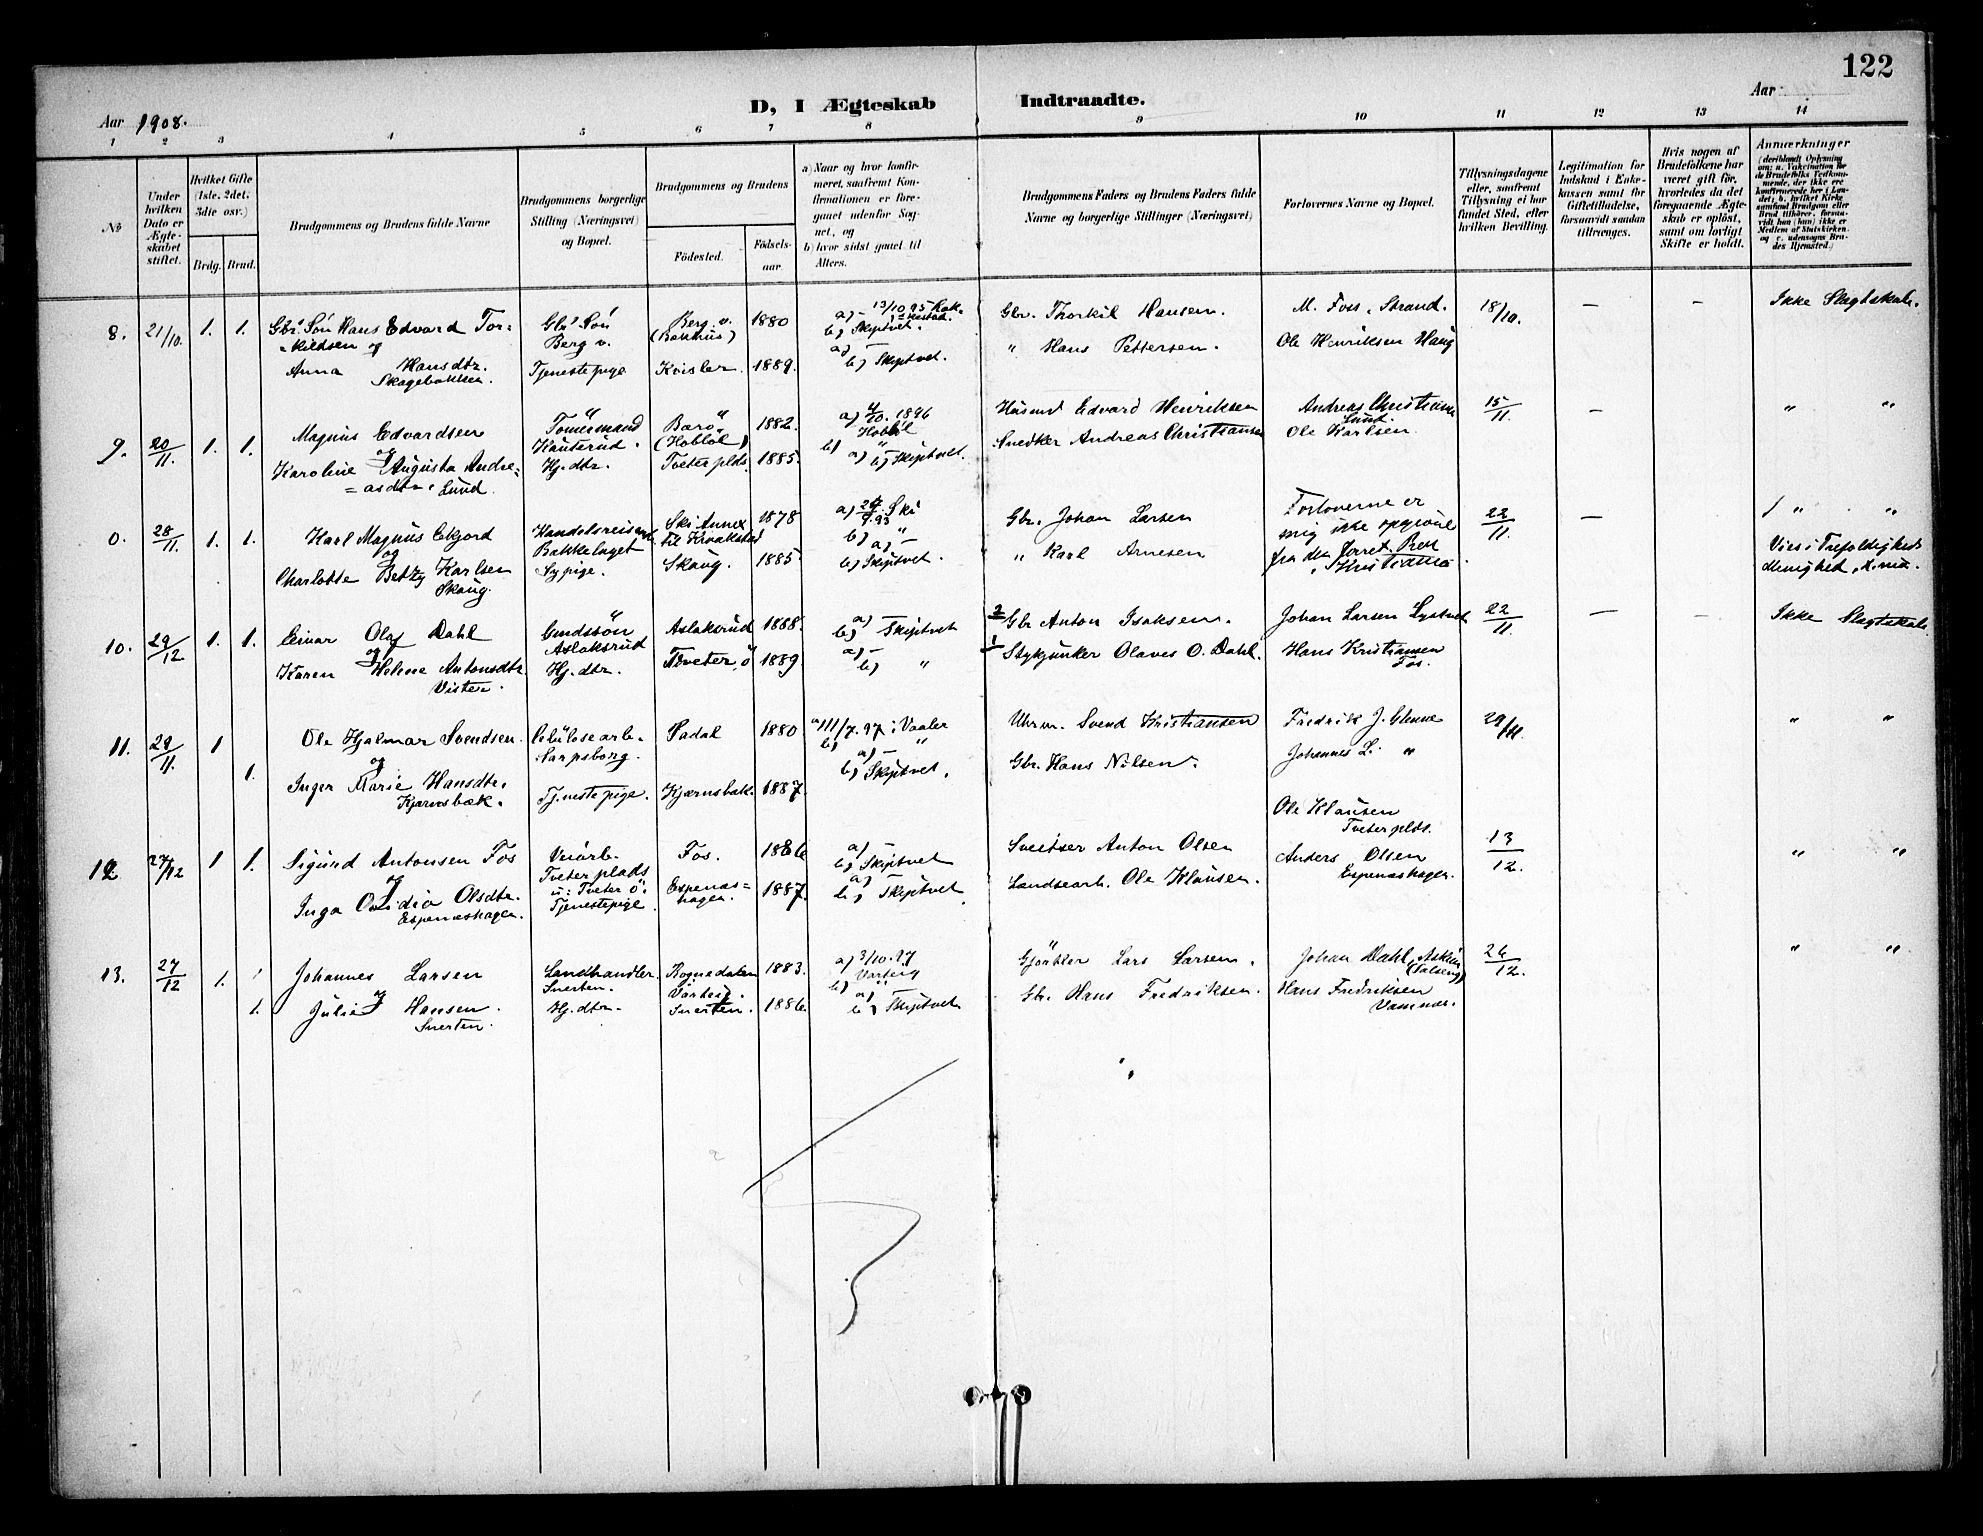 122
D, I Ægteskab Indtraadte.
Aar 1908.
Aar
1 2 3 4 5 6 7 8 9 10 11 12 13 14
No
Under hvilken Dato er Ægteskabet stiftet.
Hvilket Gifte (1ste, 2det, 3die osv.)
Brdg. Brud.
Brudgommens og Brudens fulde Navne
Brudgommens borgerlige Stilling (Næringsvei) og Bopæl.
Brudgommens og Brudens
Födested.
Födsels-aar.
a) Naar og hvor konfirmeret, saafremt Konfirmationen er foregaaet udenfor Sognet, og
b) hvor sidst gaaet til Alters.
Brudgommens Faders og Brudens Faders fulde Navne og borgerlige Stillinger (Næringsvei)
Forlovernes Navne og Bopæl.
Tillysningsdagene eller, saafremt Tillysning ei har fundet Sted, efter hvilken Bevilling.
Legitimation for Indskud i Enkekassen samt for Giftetilladelse, forsaavidt saadan tiltrænges.
Hvis nogen af Brudefolkene har været gift för, hvorledes da det foregaaende Ægteskab er oplöst, samt om lovligt Skifte er holdt.
Anmærkninger
8. 21/10. 1. 1. Gbr. Søn Hans Edvard Tor-
kildsen og
Anna Hansdtr.
Skagebakken.
Gbr. Søn
Berg v.
Tjenestepige
Berg v.
(Bakhus)
1880
1889.
a) 13/10 95 Rak-
kestad.
b) Skiptvet.
a)
b) Skiptvet.
Gbr. Thorkil Hansen.
" Hans Pettersen.
M. Foss, Strand.
Ole Henriksen Haug
18/10.
— —
Ikke Slægtskab.
9. 20/11. 1. 1. Magnus Edvardsen
og
Karoline Augusta Andre-
asdtr. Lund.
Tømermand
Hj. dtr.
(Hobbøl)
Tveter plds.
1882.
1885.
1896
Hobbøl
a)
b) Skiptvet.
Husmd Edvard Henriksen
Snedker Andreas Christiansen
Andreas Christians
Lund
Ole Karlsen.
15/11.
—
" "
0. 28/11. 1. 1. Karl Magnus Ekjord
og
Charlotte Betzy Karlsen
Skaug.
Handelsreisend
Bakkelaget
Sypige.
Ski Annex
til Kraakstad
Skaug.
1878
1885.
Ski
b) "
a) –
b) Skiptvet.
Gbr. Johan Larsen
" Karl Arnesen
Forloverne er
mig ikke opgivne
Kristiania.
22/11.
—
" "
Viet i Trefoldigheds
Menighed,
10. 29/12 1. 1. Einar Olaf Dahl
og
Karen Helene Antonsdtr.
Vister.
Aslaksrud
Hj. dtr.
Aslaksrud
Tveter, ö
1888.
1889.
a) –
b) Skiptvet
a) –
b) "
2 Gbr Anton Isaksen.
1 Stykjunker Olaves O. Dahl.
Johan Larsen Lystvet
Hans Kristiansen
Fos.
22/11.
—
Ikke Slægtskab.
11. 28/11. 1 1. Ole Hjalmar Svendsen.
og
Inger Marie Hansdtr.
Kjærnsbæk.
Celulosearb.
Sarpsborg.
Tjenestepige.
Kjærnsbæk.
1880
1887.
i Vaaler
b) "
a) –
b) Skiptvet.
Uhrm. Svend Kristiansen
Gbr. Hans Nilsen.
Fredrik J. Glenne
Johannes L. "
29/11.
" "
12 27/12 1 1. Sigurd Antonsen Fos
og
Inga Ovidia Olsdtr.
Espenæshagen.
Tveter plads
u: Tveter ö.
Tjenestepige.
Fos.
Espenæs=
hagen.
1886
1887.
a) –
b) Skiptvet
a) –
b) Skiptvet
Sveitser Anton Olsen
Landsearb. Ole Klausen.
Ole Klausen
Tveter plds.
Anders Olsen
Espenæshagen.
13/12.
" "
13. 27/12 1. 1 Johannes Larsen
og
1. Julie Hansen.
Sverten.
Landhandler.
Sverten.
Hj. dtr.
Rognedalen
Varteig.
Sverten.
1883.
1886.
a) 3/10. 97
Varteig
b) "
a)
b) Skiptvet
Gjørtler Lars Larsen.
Gbr. Hans Fredriksen.
Johan Dahl, Askim
Hans Fredriksen
26/12.
" "